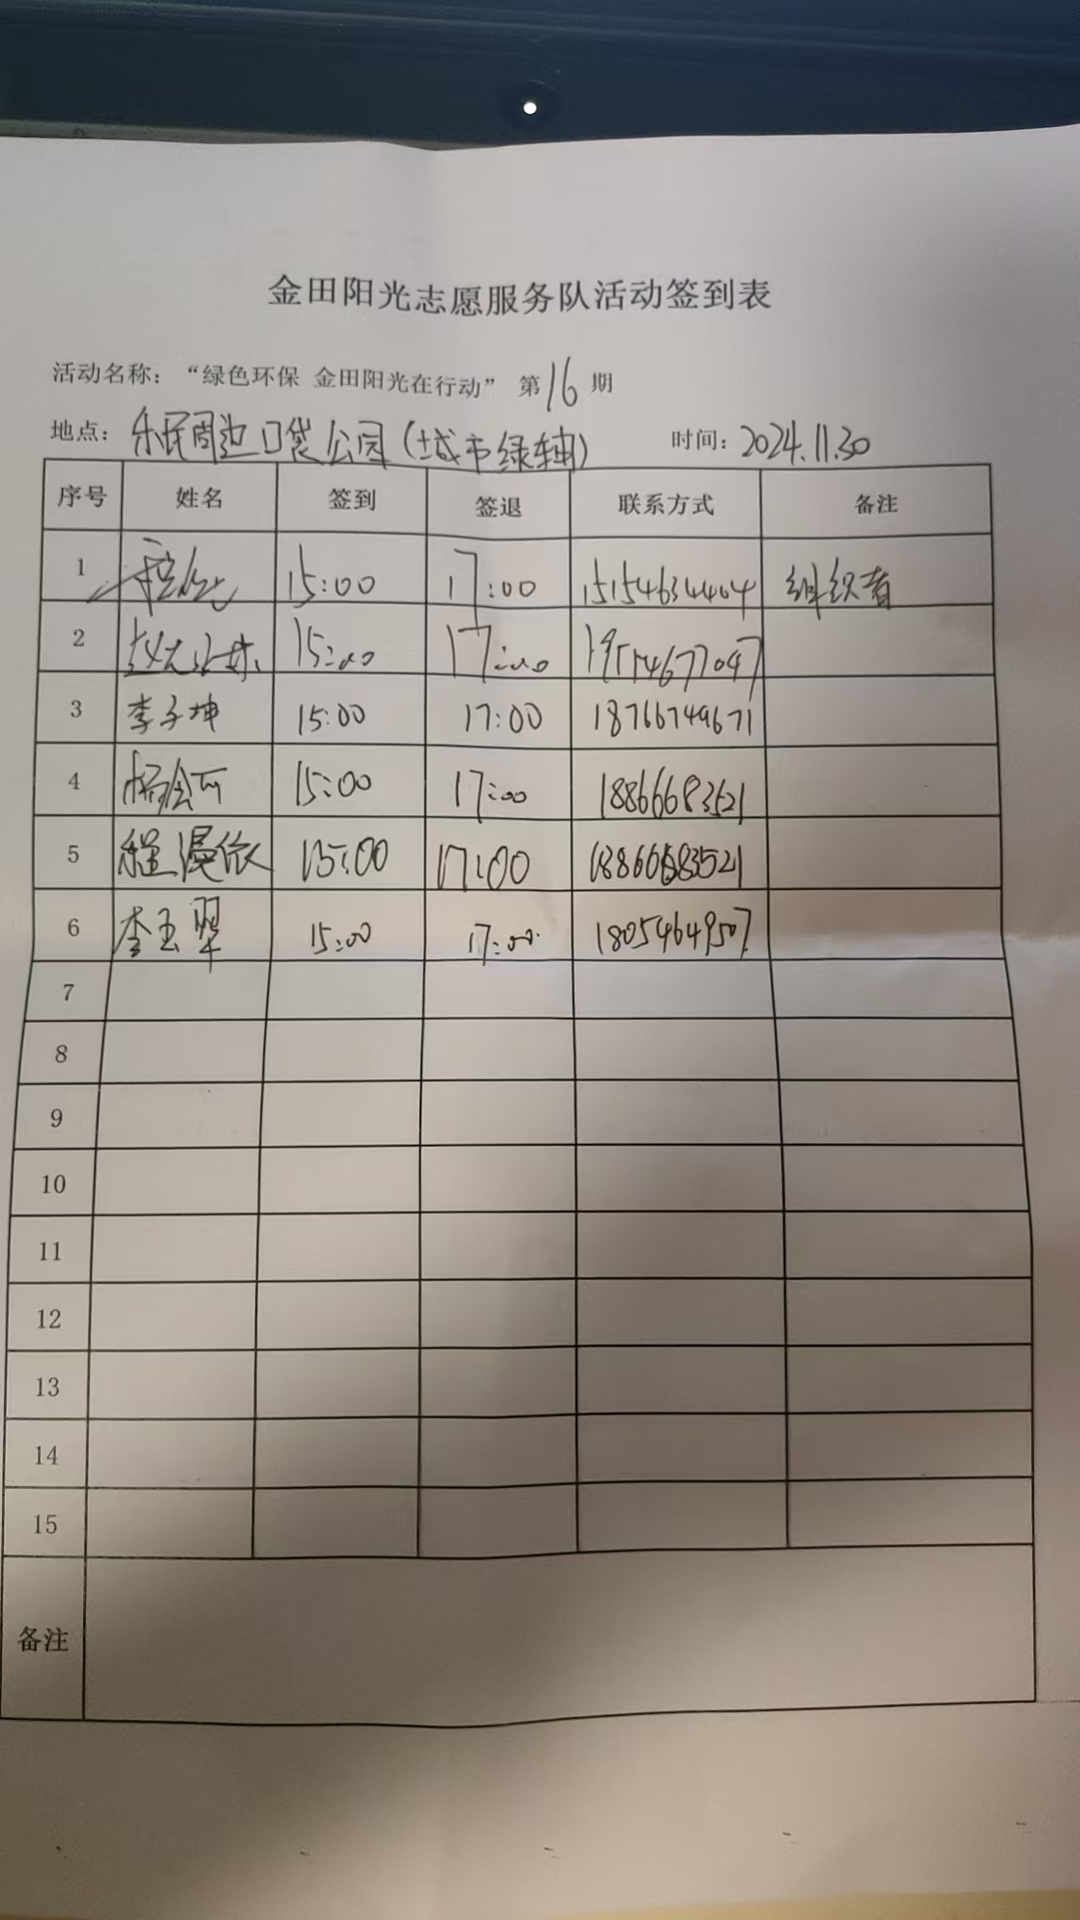 金田阳光志愿服务队活动签到表
活动名称：“绿色环保 金田阳光在行动” 第16期
地点：乐民周边口袋公园（城市绿轴） 时间：2024.11.30
序号 姓名 签到 签退 联系方式 备注
1 15:00 17:00 15154634404 组织者
2 15:00 17:00
3 李子坤 15:00 17:00 18766749671
4 杨会可 15:00 17:00 18866683521
5 程漫依 15:00 17:00 18866683521
6 李玉翠 15:00 17:00 18054649507
7
8
9
10
11
12
13
14
15
备注